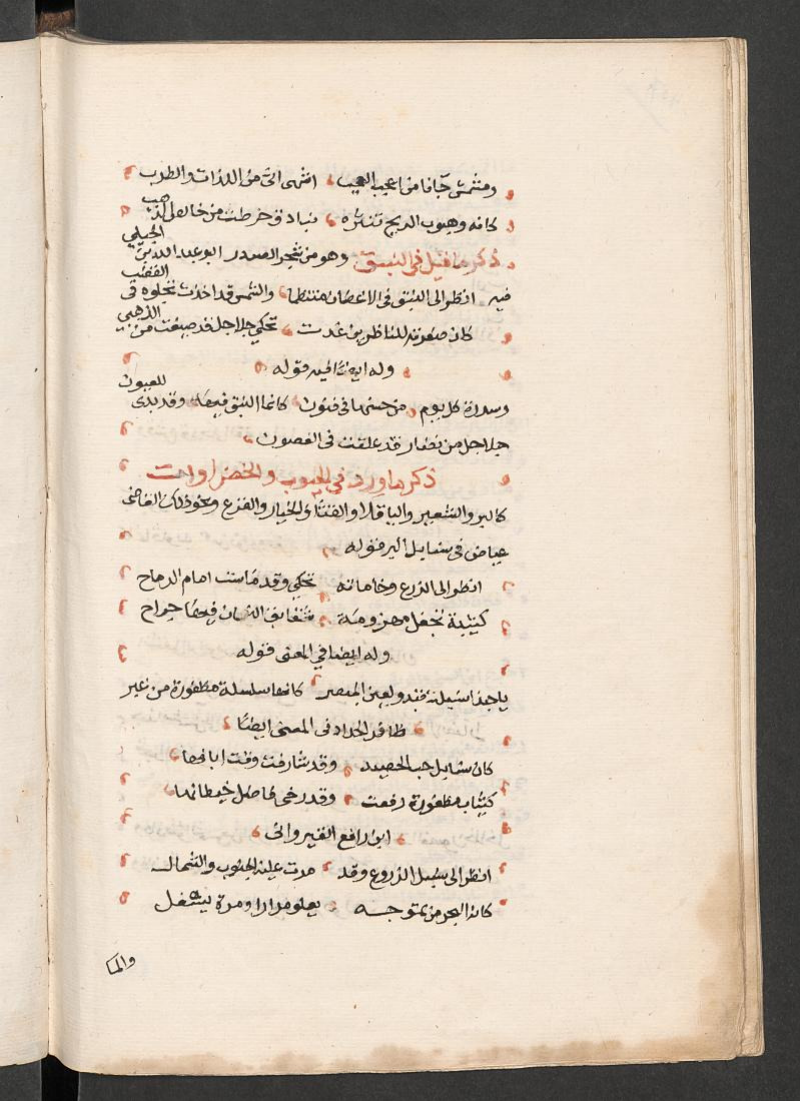 ومشمش جآنا من اعجب العجب اشهى الي من اللذات والطرب
كانه وهبوب الريح تنثره بنادق خرطت من خالص الذهب
ذكر ما قيل في النبق وهو من شجر السدر ابو عبد الله بن الجبلي
فيه انظر الى النبق فى الاغصان منتظما والشمس قد اخذت تجلوه فى القضب
كان صفرته للناظرين غدت تحكي جلاجل قد صيغت من الذهبى
وله ايضا فيه قوله
وسدرة كل يوم من حسنها فى فنون كانما النبق فيها وقد بدى للعيون
جلاجل من نضار قد علقت فى الغصون
ذكر ما ورد في الحبوب والخضراوات
كالبر والشعير والباقلا والقثا والخيار والقرع ونحو ذلك القاضى
عياض فى سنابل البر قوله
انظر الى الزرع وخاماته تحكي وقد ماست امام الرياح
كتيبة تجفل مهزومة شقايق النعمان فيها جراح
وله ايضا في المعنى قوله
يا حبذا سنبلة تبدو لعين المبصر كانها سلسلة مظفورة من عنبر
ظافر الحداد فى المعنى ايضًا
كان سنابل حب الحصيد وقد شارفت وقت ابانها
كبار مظفورة رفعت وقد رخى فاضل خيطانها
ابن رافع القيروانى
انظر الى سنبل الزروع وقد مرت عليه الجنوب والشمال
كانه البحر من تموجه يعلو مرارا ومرة يستفل
والما